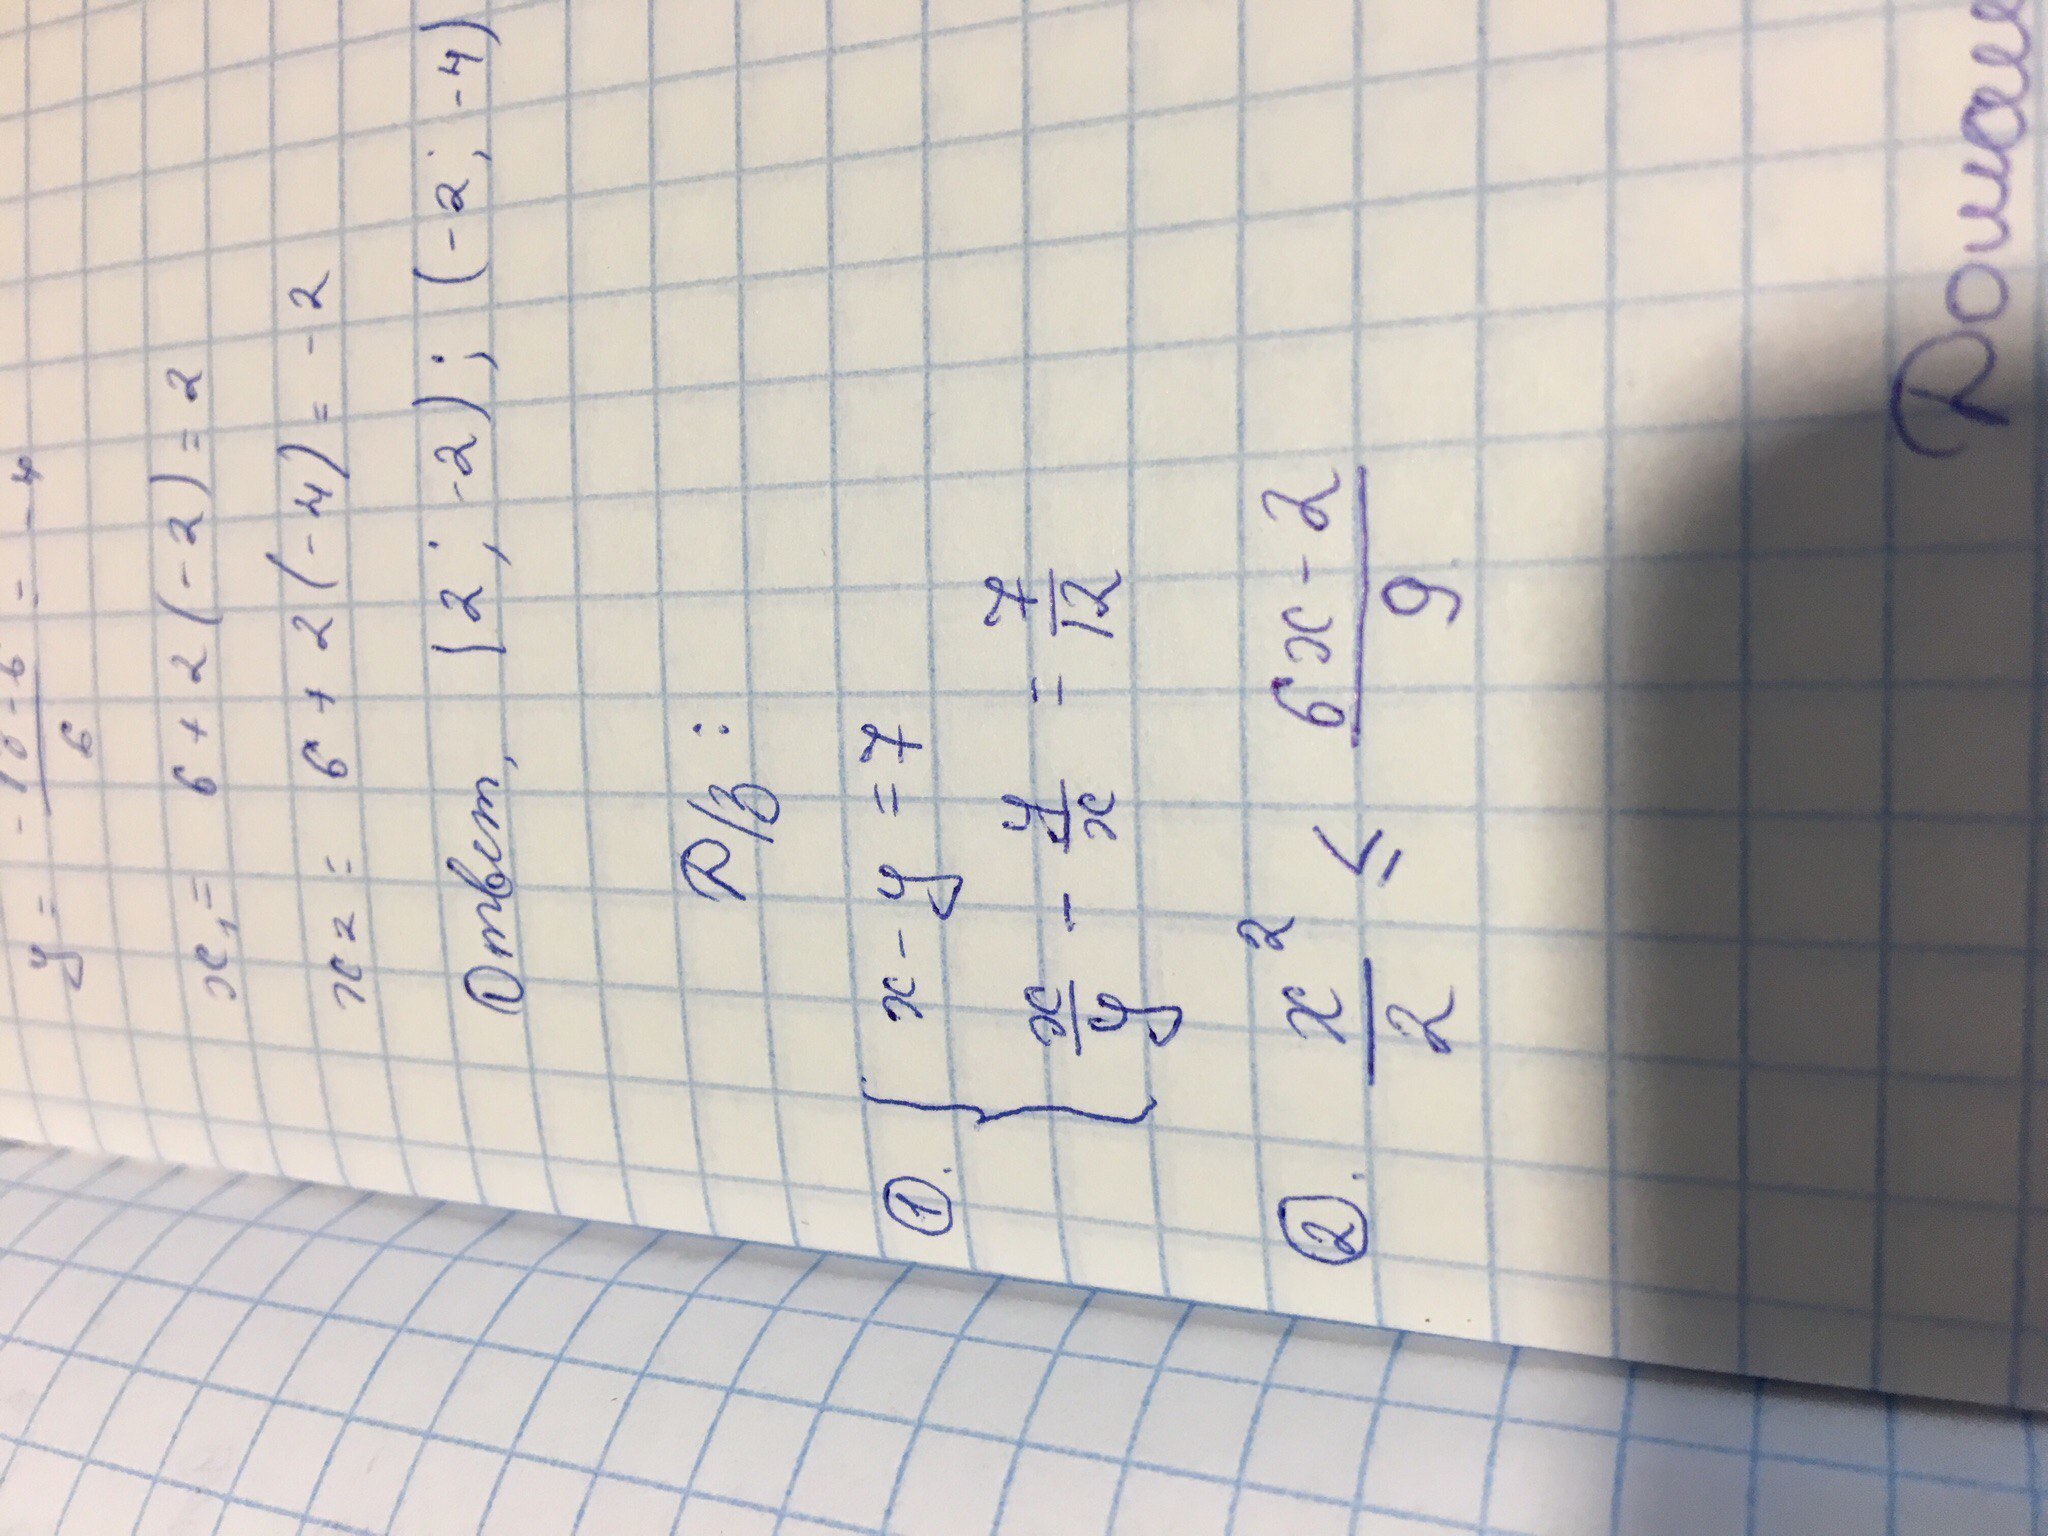 y = = -4
6
x₁ = 6 + 2(-2) = 2
x₂ = 6 + 2(-4) = -2
Ответ, (2; -2); (-2; -4)
Д/З:
①. { x - y = 7
x/y - y/x = 7/12
②. x²/2 ≤ (6x - 2)/9